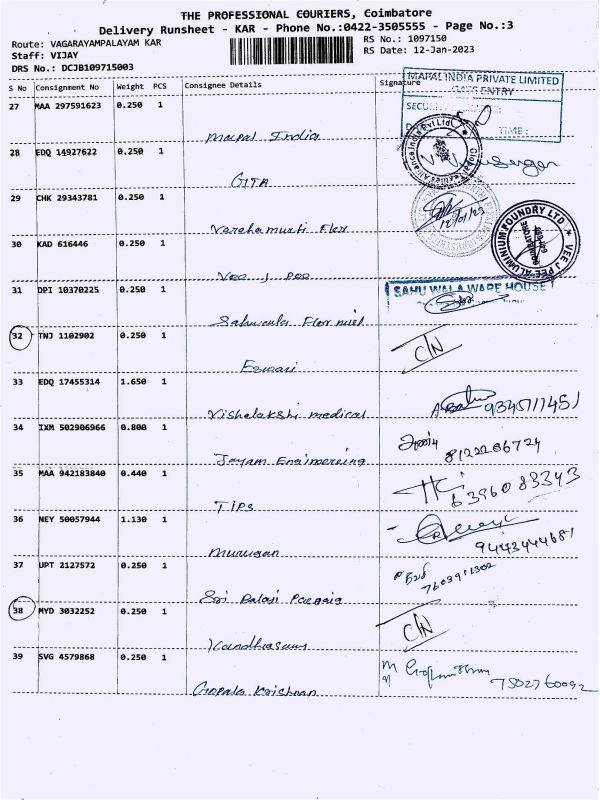 THE PROFESSIONAL COURIERS, Coimbatore
Delivery Runsheet - KAR - Phone No.:0422-3505555 - Page No.:3
Route: VAGARAYAMPALAYAM KAR
RS No.: 1097150
Staff: VIJAY
RS Date: 12-Jan-2023
DRS No.: DCJB109715003
S No Consignment No Weight PCS Consignee Details Signature
MAPAL INDIA PRIVATE LIMITED
GATE ENTRY
27 MAA 297591623 0.250 1
TIME :
Mapal India
28 EDQ 14927622 0.250 1
GITA
29 CHK 29343781 0.250 1
12/01/23
Varahamurti Flex
VEE J PEE ALUMINIUM FOUNDRY LTD
30 KAD 616446 0.250 1
Vee J Pee
31 DPI 10370225 0.250 1
SAHU WALA WARE HOUSE
Sahuwala
32 TNJ 1102902 0.250 1
C/N
Eswari
33 EDQ 17455314 1.650 1
Vishalakshi medical
9345711451
34 IXM 502906966 0.800 1
Jayam Engineering
8122266724
35 MAA 942183840 0.440 1
TIPS
6396083343
36 NEY 50057944 1.130 1
Murugan
9443444681
37 UPT 2127572 0.250 1
Sri Balaji
38 MYD 3032252 0.250 1
C/N
Kandhasamy
39 SVG 4579868 0.250 1
7502760092
Gopala Krishnan